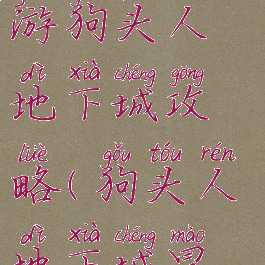 游狗头人
dì xià chéng gōng
地下城攻
lüè gǒu tóu rén
略(狗头人
dì xià chéng mào
地下城冒